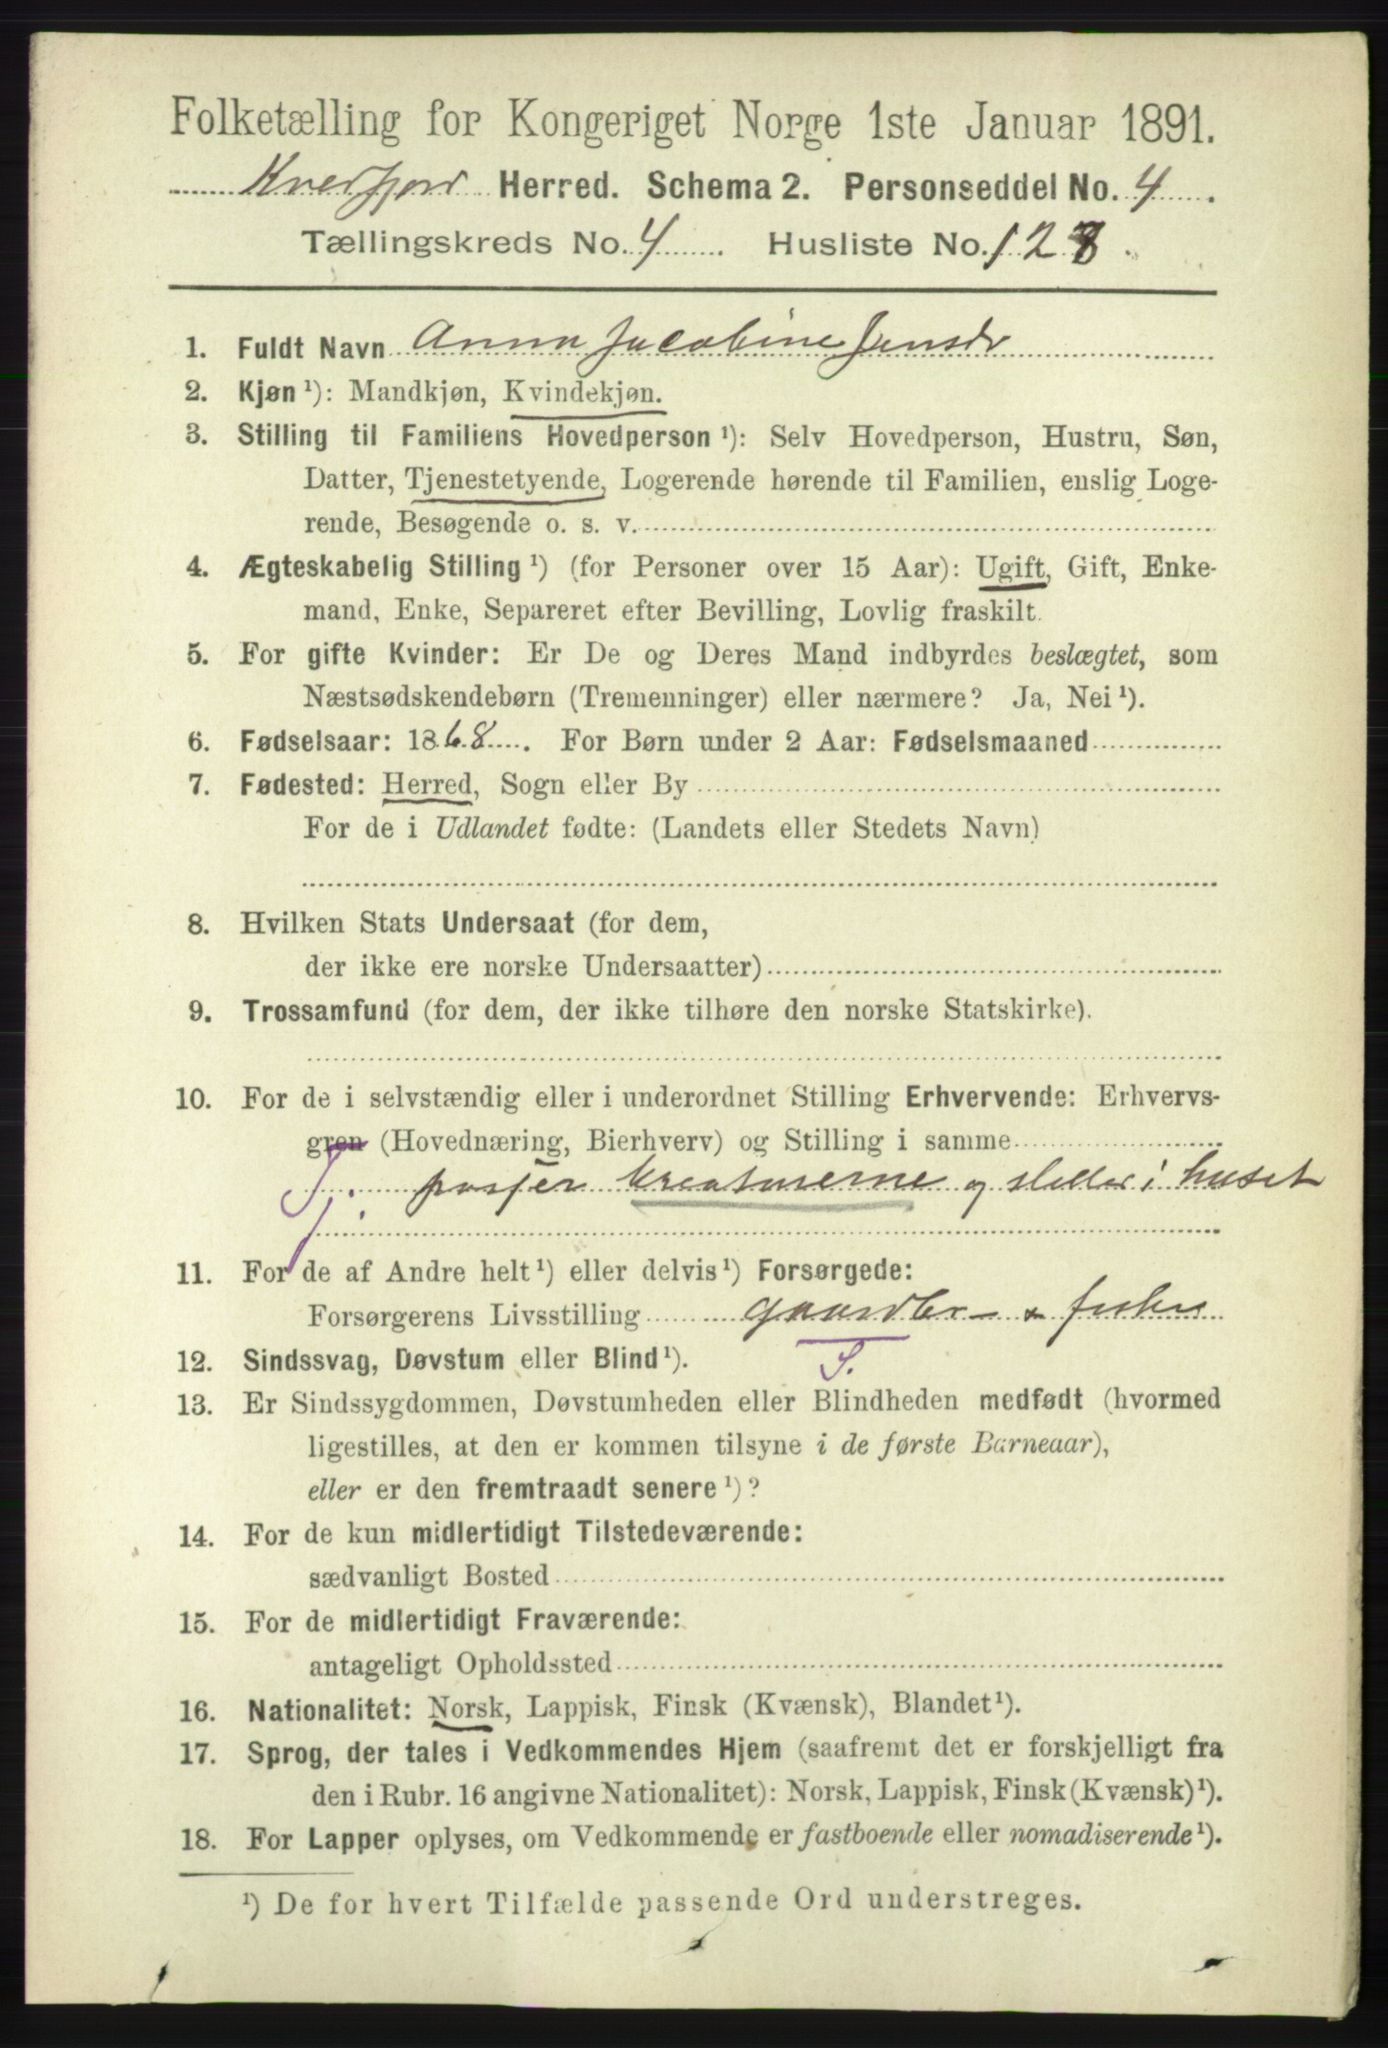 Folketælling for Kongeriget Norge 1ste Januar 1891.
Kvæfjord Herred. Schema 2. Personseddel No. 4.
Tællingskreds No. 4. Husliste No. 128.
1. Fuldt Navn Anna Jacobine Jensdr
2. Kjøn ¹): Mandkjøn, Kvindekjøn.
3. Stilling til Familiens Hovedperson ¹): Selv Hovedperson, Hustru, Søn,
Datter, Tjenestetyende, Logerende hørende til Familien, enslig Loge-
rende, Besøgende o. s. v.
4. Ægteskabelig Stilling ¹) (for Personer over 15 Aar): Ugift, Gift, Enke-
mand, Enke, Separeret efter Bevilling, Lovlig fraskilt.
5. For gifte Kvinder: Er De og Deres Mand indbyrdes beslægtet, som
Næstsødskendebørn (Tremenninger) eller nærmere? Ja, Nei ¹).
6. Fødselsaar: 1868. For Børn under 2 Aar: Fødselsmaaned
7. Fødested: Herred, Sogn eller By
For de i Udlandet fødte: (Landets eller Stedets Navn)
8. Hvilken Stats Undersaat (for dem,
der ikke ere norske Undersaatter)
9. Trossamfund (for dem, der ikke tilhøre den norske Statskirke).
10. For de i selvstændig eller i underordnet Stilling Erhvervende: Erhvervs-
gren (Hovednæring, Bierhverv) og Stilling i samme
Tj. passer kreaturerne og steller i huset
11. For de af Andre helt ¹) eller delvis ¹) Forsørgede:
Forsørgerens Livsstilling gaardbr fisker
12. Sindssvag, Døvstum eller Blind ¹). S.
13. Er Sindssygdommen, Døvstumheden eller Blindheden medfødt (hvormed
ligestilles, at den er kommen tilsyne i de første Barneaar),
eller er den fremtraadt senere ¹)?
14. For de kun midlertidigt Tilstedeværende:
sædvanligt Bosted
15. For de midlertidigt Fraværende:
antageligt Opholdssted
16. Nationalitet: Norsk, Lappisk, Finsk (Kvænsk), Blandet ¹).
17. Sprog, der tales i Vedkommendes Hjem (saafremt det er forskjelligt fra
den i Rubr. 16 angivne Nationalitet): Norsk, Lappisk, Finsk (Kvænsk) ¹).
18. For Lapper oplyses, om Vedkommende er fastboende eller nomadiserende ¹).
¹) De for hvert Tilfælde passende Ord understreges.